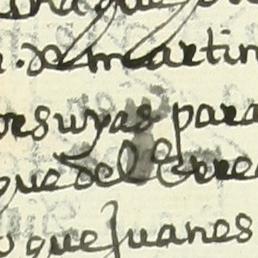 de martin
suyas para
que del erre
que Juanes